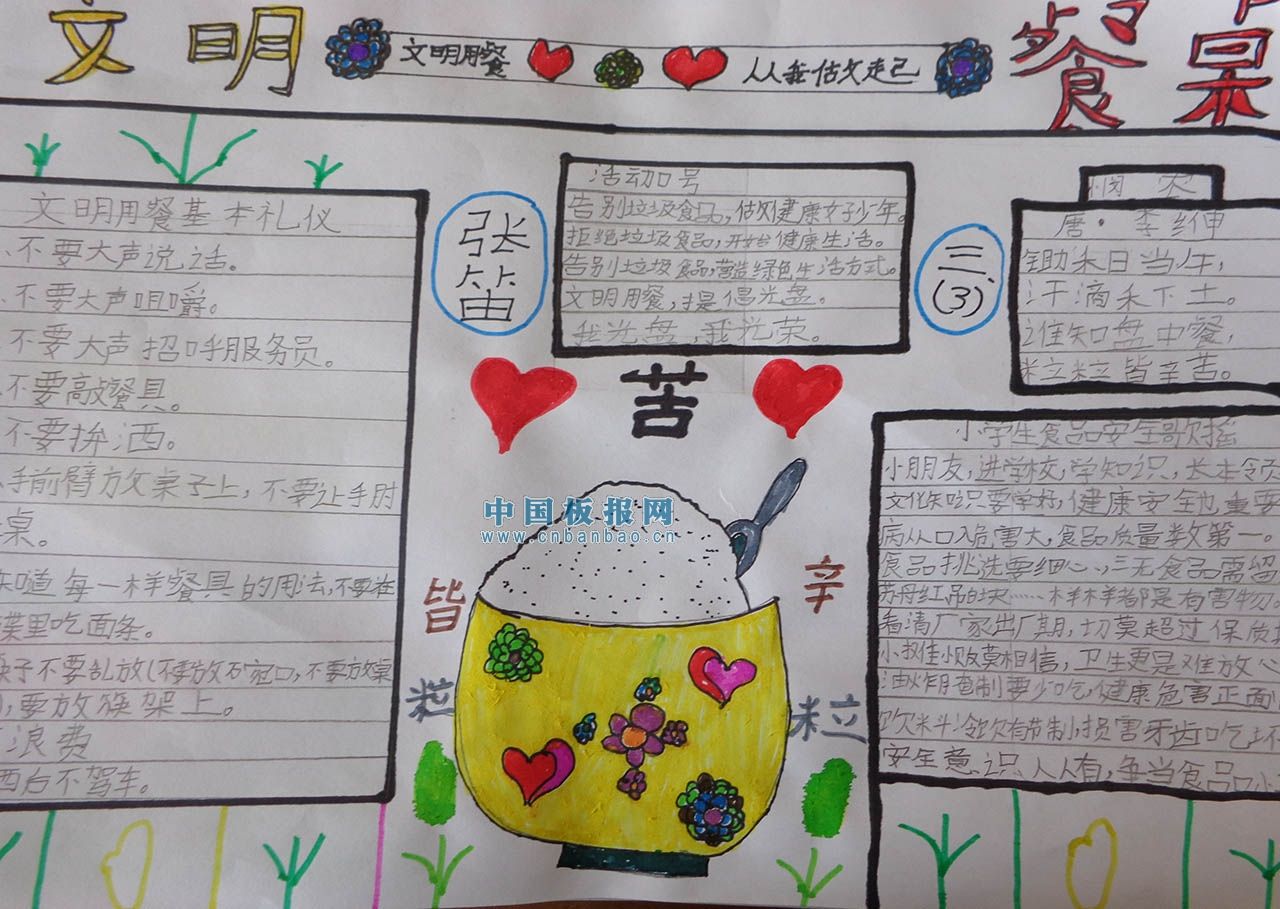 文明
文明用餐
餐桌
文明用餐基本礼仪
不要大声说话。
不要大声咀嚼。
不要大声招呼服务员。
不要高敲餐具。
不要挑洒。
手前臂放桌子上，不要让手肘
桌。
道每一样餐具的用法，不要在
碟里吃面条。
子不要乱放
要放筷架上。
浪费
不驾车。
张笛
活动口号
告别垃圾食品，做健康女子少年。
拒绝垃圾食品，开始健康生活。
告别垃圾食品，营造绿色生活方式。
文明用餐，提倡光盘。
我光盘，我光荣。
三、
(3)
悯农
唐·李绅
锄禾日当午，
汗滴禾下土。
谁知盘中餐，
粒粒皆辛苦。
小学生食品安全歌摇
小朋友，进学校，学知识，长本领
文化知识要学好，健康安全也重要
病从口入危害大，食品质量数第一。
食品挑选要细心，三无食品需留
样样都是有害物
看清厂家出厂期，切莫超过保质
莫相信，卫生更是难放心
要少吃，健康危害正面
饮料冷饮有节制，损害牙齿吃坏
安全意识人人有，争当食品小
苦
辛
皆
粒
粒
中国板报网
www.cnbanbao.cn